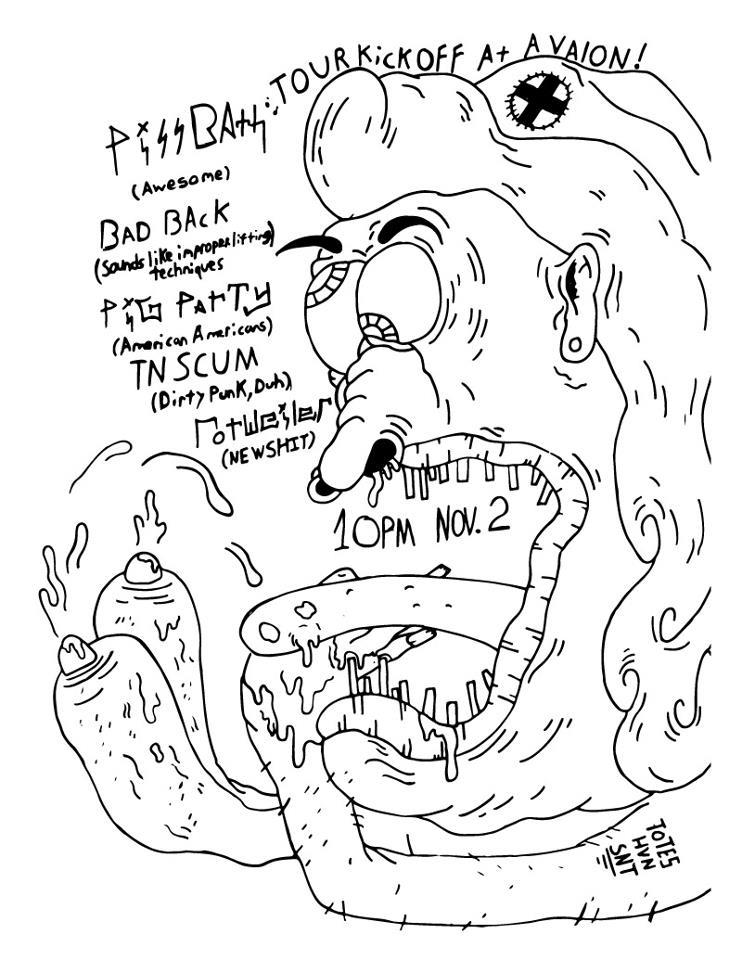 TOUR KiCKOFF At AVAlON!
PissBAth:
(Awesome)
BAD BACK
(Sounds like improper lifting
techniques)
PiG PArTY
(American Americans)
TN SCUM
(Dirty Punk, Duh)
rotweiler
(NEW SHIT)
10PM NOV. 2
TOTES
HVN
SNT